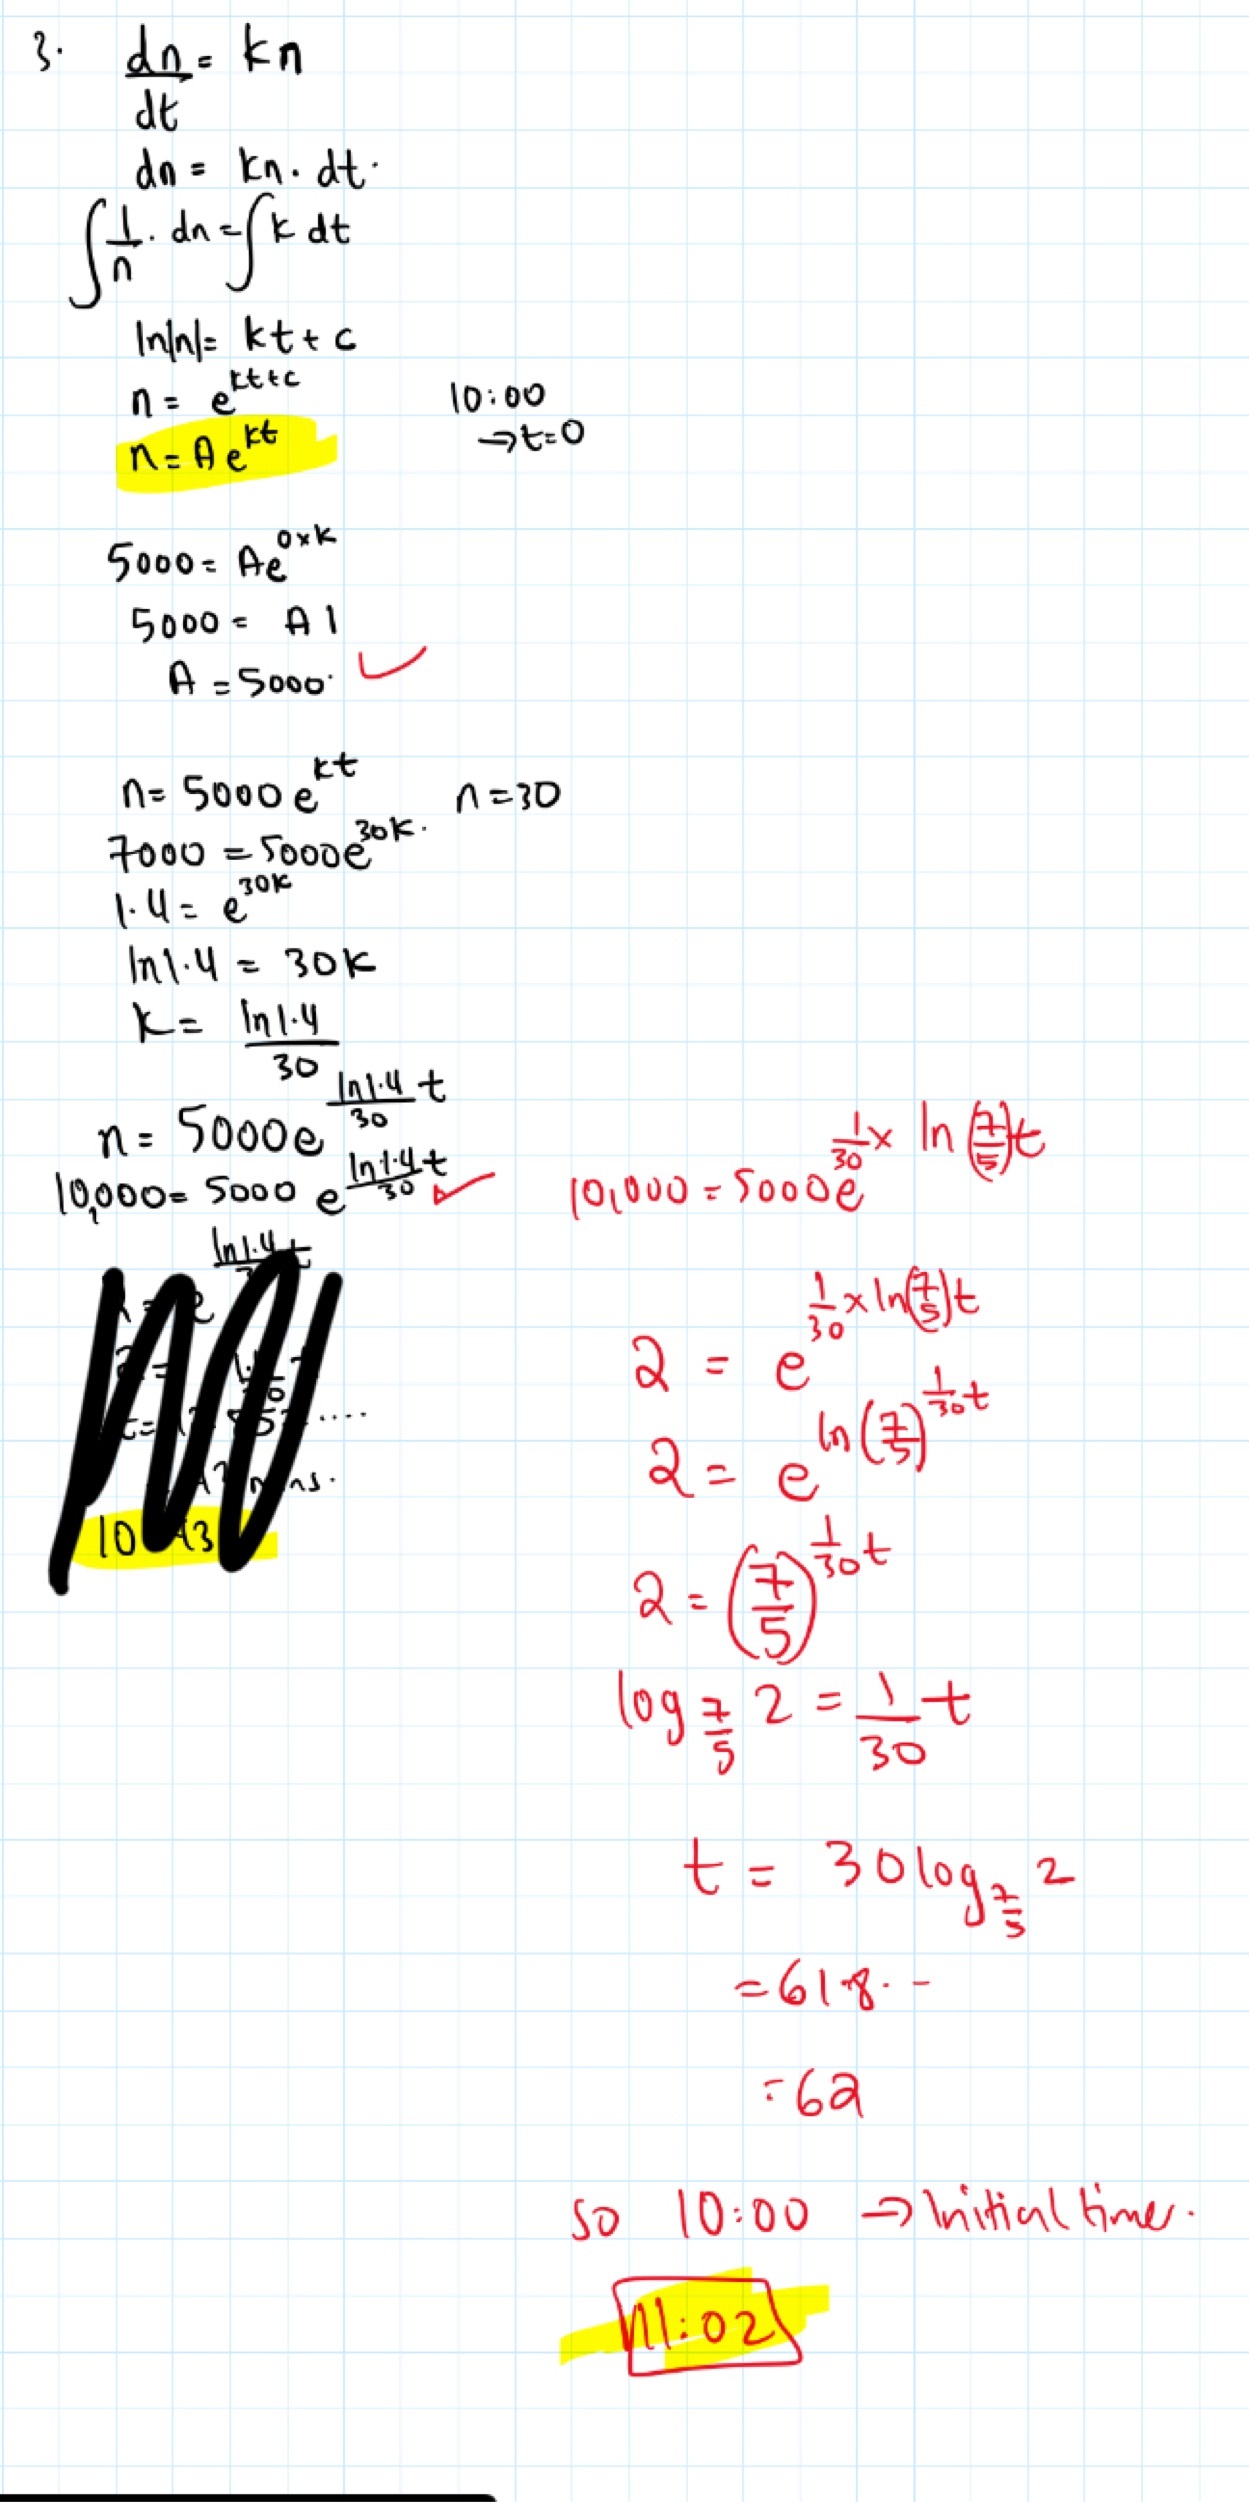 3. dn/dt = kn
dn = kn. dt.
∫ 1/n . dn = ∫ k dt
ln|n| = kt + c
n = e^(kt+c)
10:00
n = A e^(kt)
→ t=0
5000 = Ae^(0×k)
5000 = A1
A = 5000. ✓
n = 5000 e^(kt) n = 30
7000 = 5000e^(30k).
1.4 = e^(30k)
ln1.4 = 30k
k = ln1.4/30
n = 5000e^(ln1.4/30 t)
10,000 = 5000 e^(ln1.4/30 t) ✓
10,000 = 5000e^(1/30 × ln(7/5)t)
2 = e^(1/30 × ln(7/5)t)
2 = e^(ln(7/5)^(1/30 t))
2 = (7/5)^(1/30 t)
log_(7/5) 2 = 1/30 t
t = 30log_(7/5) 2
= 618. -
= 62
so 10:00 → Initial time.
11:02